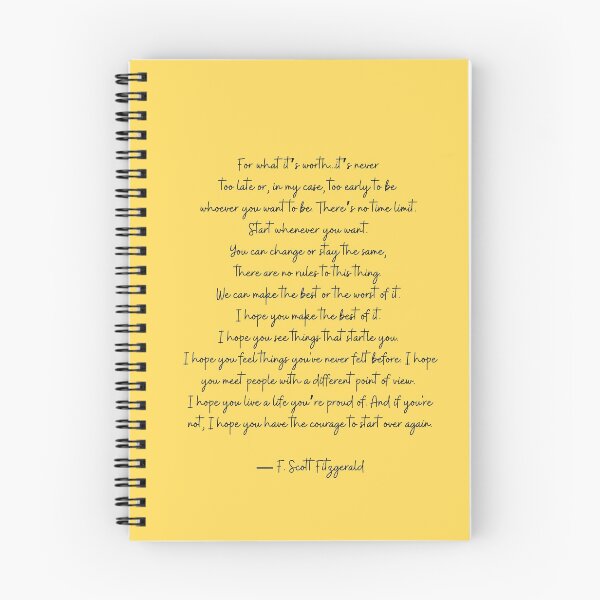 For what it's worth...it's never
too late or, in my case, too early to be
whoever you want to be. There's no time limit.
Start whenever you want.
You can change or stay the same,
There are no rules to this thing.
We can make the best or the worst of it.
I hope you make the best of it.
I hope you see things that startle you.
I hope you feel things you've never felt before. I hope
you meet people with a different point of view.
I hope you live a life you're proud of. And if you're
not, I hope you have the courage to start over again.
— F. Scott Fitzgerald